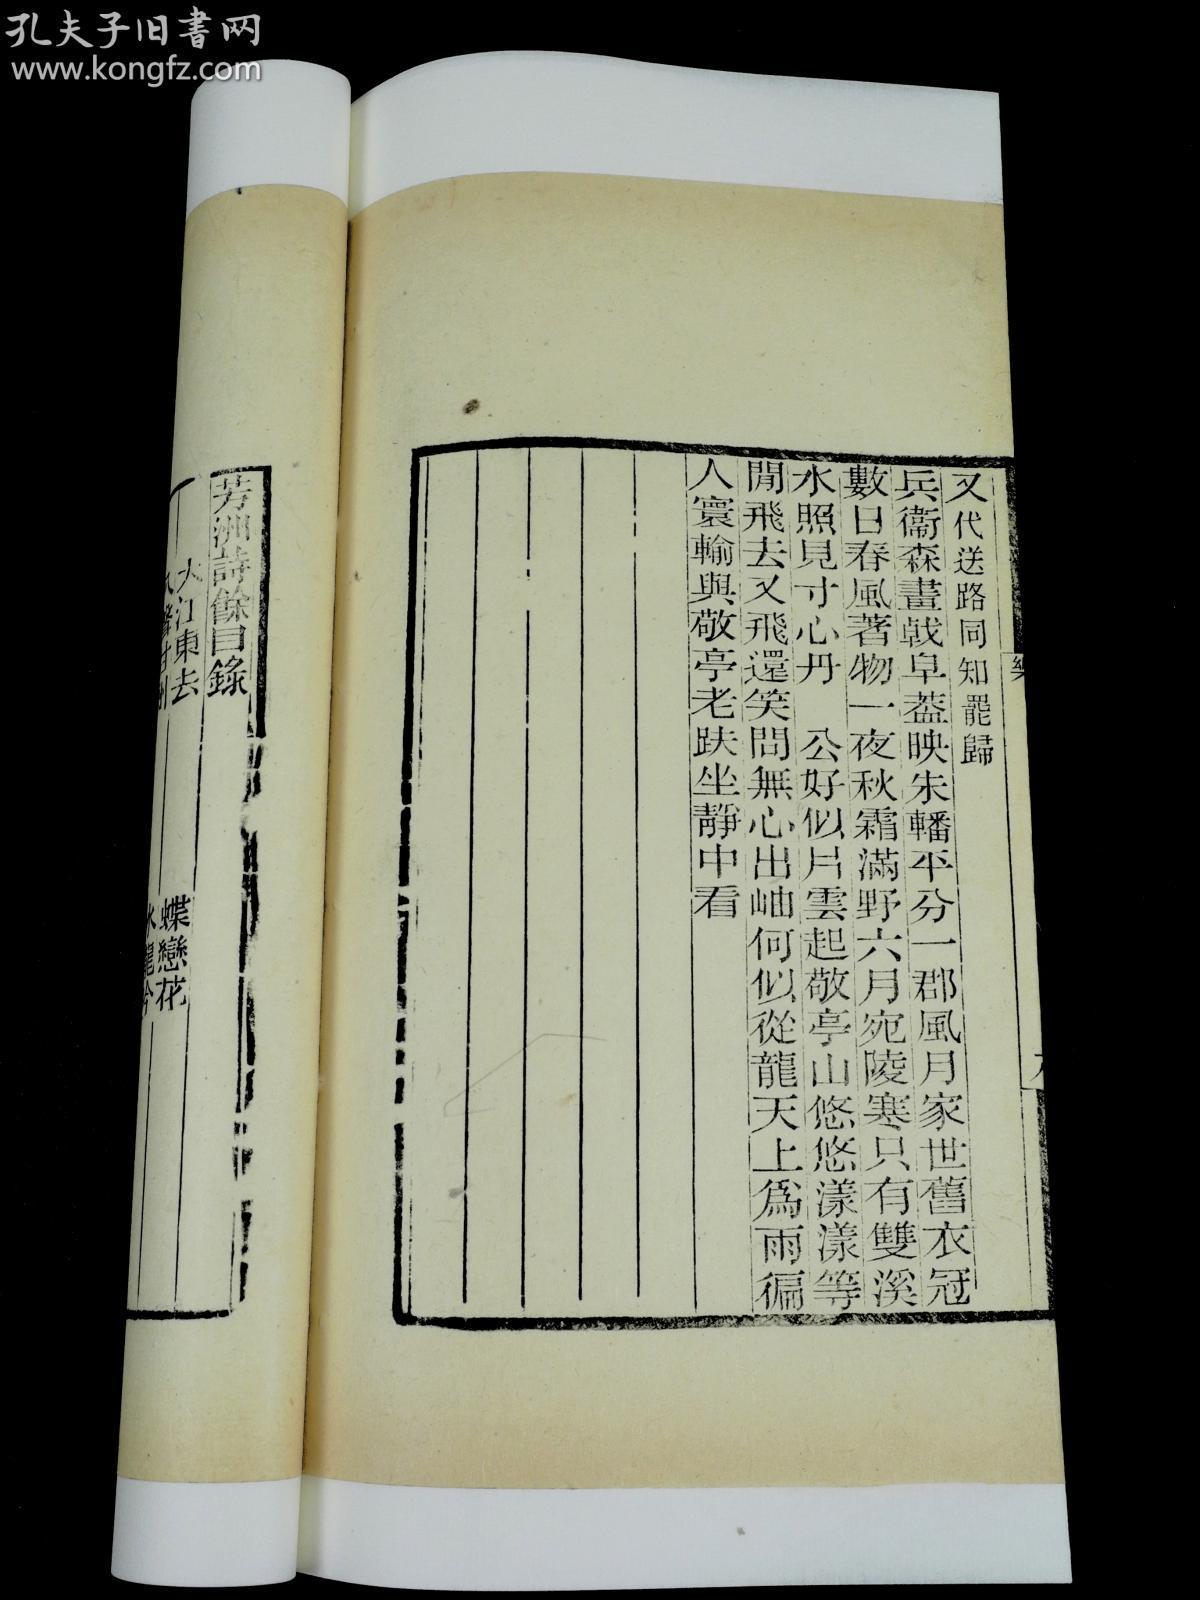 孔夫子旧书网
www.kongfz.com
又代送路同知罷歸
兵衞森畫戟阜葢映朱轓平分一郡風月家世舊衣冠
數日春風著物一夜秋霜滿野六月宛陵寒只有雙溪
水照見寸心丹　公好似片雲起敬亭山悠悠漾漾等
閒飛去又飛還笑問無心出岫何似從龍天上爲雨徧
人寰輸與敬亭老趺坐靜中看
芳洲詩餘目錄
大江東去　蝶戀花